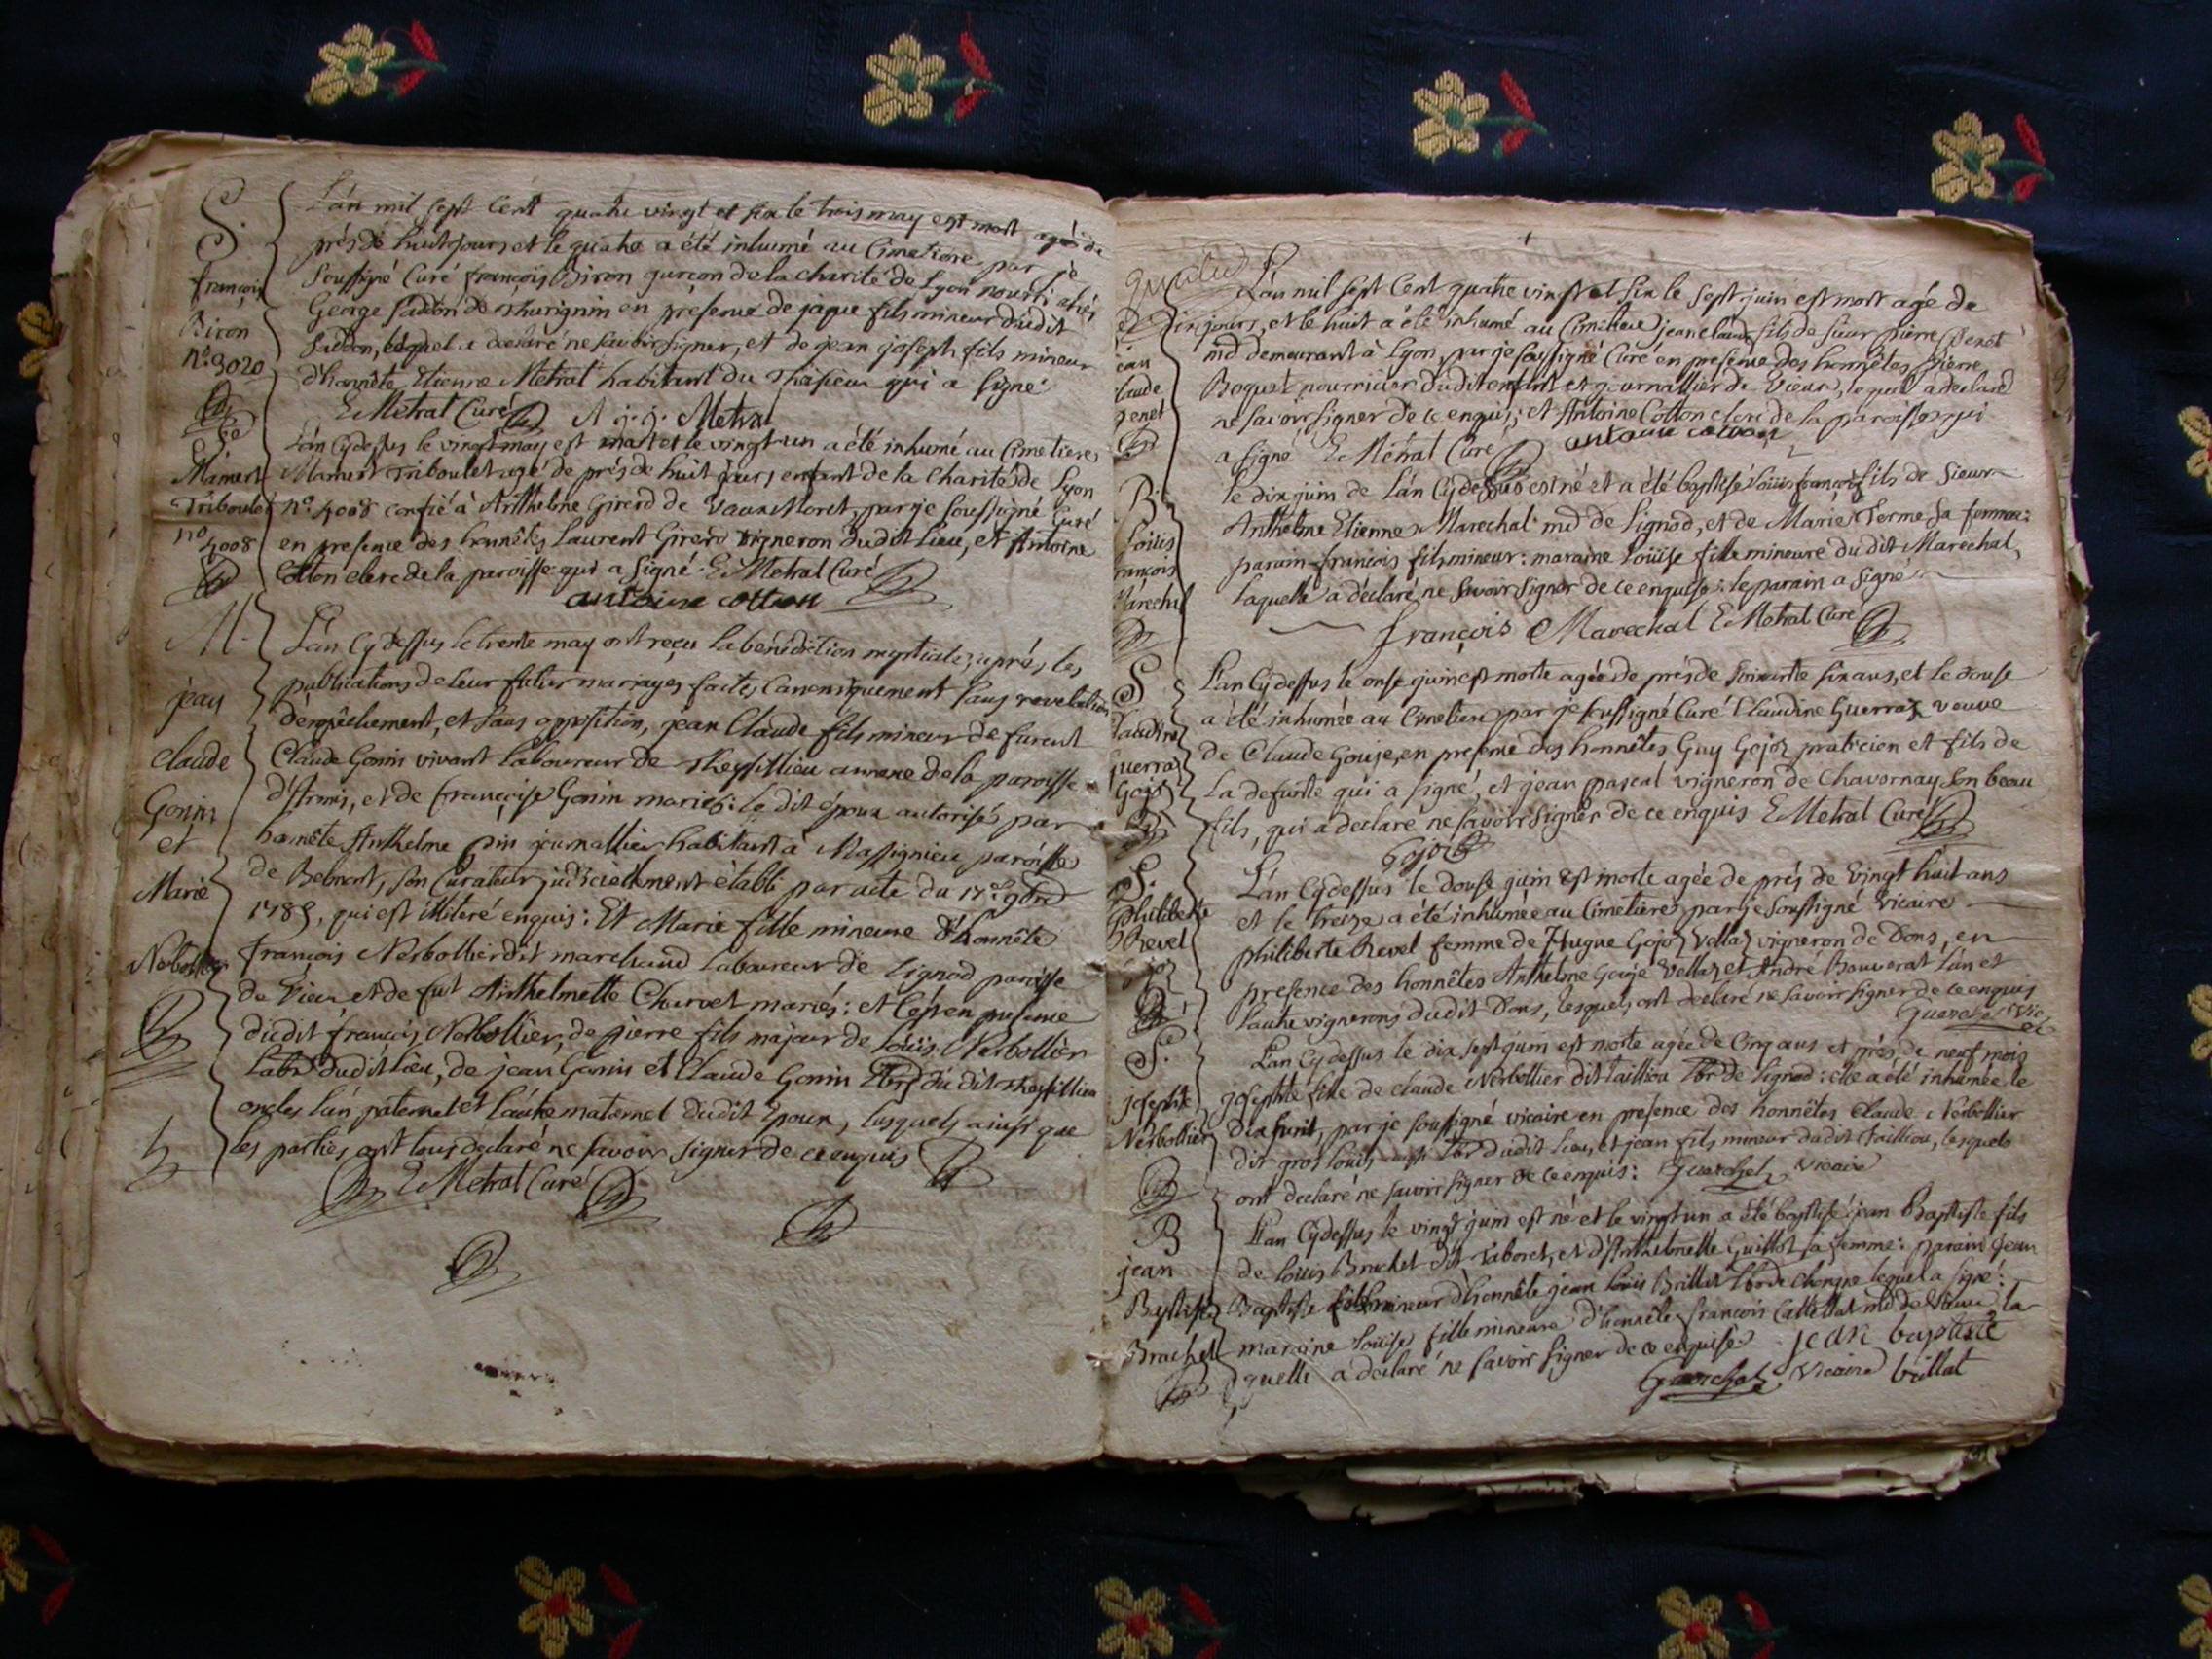 S.
françois
Biron
n°. 9020
L'an mil sept Cent quatre vingt et six le trois may est mort agé de
près de huit jours et le quatre a été inhumé au Cimetiere par je
soussigné Curé françois Biron garçon de la charité de Lyon nourri chés
George de Thurignin en presence de jaque fils mineur dudit
lequel a declaré ne savoir signer, et de jean joseph fils mineur
d'honnête Etienne Metral habitant du qui a signé
E Metral Curé j. j. Metral
S.
Mamert
Triboulet
n°
4008
L'an Cydessus le vingt may est mort et le vingt-un a été inhumé au Cimetiere
Mamert Triboulet agé de près de huit jours enfant de la Charité de Lyon
n°. 4008 confié à Anthelme Girerd de Vaux Moret, par je soussigné Curé
en presence des honnêtes Laurent Girerd vigneron dudit Lieu, et Antoine
Cotton clerc de la paroisse qui a signé. E Metral Curé
antoine cotton
M.
jean
claude
Gonin
et
Marie
Nerbollier
L'an Cydessus le trente may ont reçu la bénédiction nuptiale, après les
publications de leur futur mariage, faites Canoniquement sans revelation
d'empêchement, et sans opposition, jean Claude fils mineur de furent
Claude Gonin vivant laboureur de annexe de la paroisse
et de françoise Gonin mariés: le dit époux autorisé par
honnête Anthelme pin journallier habitant à Massignieu paroisse
de Belmont, son Curateur judiciellement établi par acte du 17e. 9bre
1785, qui est illiteré enquis: Et Marie fille mineure d'honnête
françois Nerbollier dit marchand laboureur de Lignod paroisse
de Vieu et de fut Anthelmette Charvet mariés: et c'est en presence
dudit françois Nerbollier, de pierre fils majeur de Louis Nerbollier
Labr dudit Lieu, de jean Gonin et Claude Gonin Lbrs du dit
oncles l'un paternel et l'autre maternel dudit Epoux, lesquels ainsi que
les parties ont tous declaré ne savoir signer de ce enquis
E Metral Curé
S.
jean
claude
penet
L'an mil sept Cent quatre vingt et six le sept juin est mort agé de
dix jours, et le huit a été inhumé au Cimetiere jean claude fils de sieur pierre penet
md demeurant à Lyon, par je soussigné Curé en presence des honnêtes pierre
Boquet nourricier dudit enfant et journallier de Vieux, lequel a declaré
ne savoir signer de ce enquis; et Antoine Cotton clerc de la paroisse qui
a signé E Metral Curé antoine cotton
B.
Loüis
françois
Marechal
le dix juin de L'an Cydessus est né et a été baptisé Loüis françois fils de Sieur
Anthelme Etienne Marechal md de Lignod, et de Marie Ferme sa femme:
parain françois fils mineur: maraine Loüise fille mineure dudit Marechal,
Laquelle a déclaré ne savoir signer de ce enquise: le parain a signé
françois Marechal E Metral Curé
S.
Claudine
guerraz
Gojoz
L'an Cydessus le onse juin est morte agée de près de soixante six ans, et le douse
a été inhumée au Cimetiere par je soussigné Curé Claudine Guerraz veuve
de Claude Gouje, en presence des honnêtes Guy Gojoz praticien et fils de
La defunte qui a signé, et jean pascal vigneron de Chavornay son beau
fils, qui a declaré ne savoir signer de ce enquis E Metral Curé
Gojoz
S.
philiberte
Revel
Gojoz
L'an Cydessus le douse juin est morte agée de près de vingt huit ans
et le treize a été inhumée au Cimetiere par je soussigné Vicaire
philiberte Revel femme de Hugue Gojoz Vellaz vigneron de Dons, en
presence des honnêtes Anthelme Gouje Vellaz et André Bouverat L'un et
L'autre vignerons dudit Dons, lesquels ont declaré ne savoir signer de ce enquis
S.
josephte
Nerbollier
L'an Cydessus le dix sept juin est morte agée de cinq ans et près de neuf mois
josephte fille de claude Nerbollier dit Tailliou Lbr de Lignod: elle a été inhumée le
dix huit, par je soussigné vicaire en presence des honnêtes Claude Nerbollier
dit gros Louis Lbr dudit Lieu, et jean fils mineur dudit Tailliou, lesquels
ont declaré ne savoir signer de ce enquis: vicaire
B
jean
Baptiste
Brachet
L'an Cydessus le vingt juin est né et le vingt un a été baptisé jean Baptiste fils
de Loüis Brachet dit Taboret, et d'Anthelmette Guillot sa femme: parain jean
Baptiste fils mineur d'honnête jean Louis Brillat Lbr de Chongne lequel a signé:
maraine Loüise fille mineure d'honnête françois md de Vieu la
quelle a declaré ne savoir signer de ce enquise. jean baptiste
Vicaire brillat